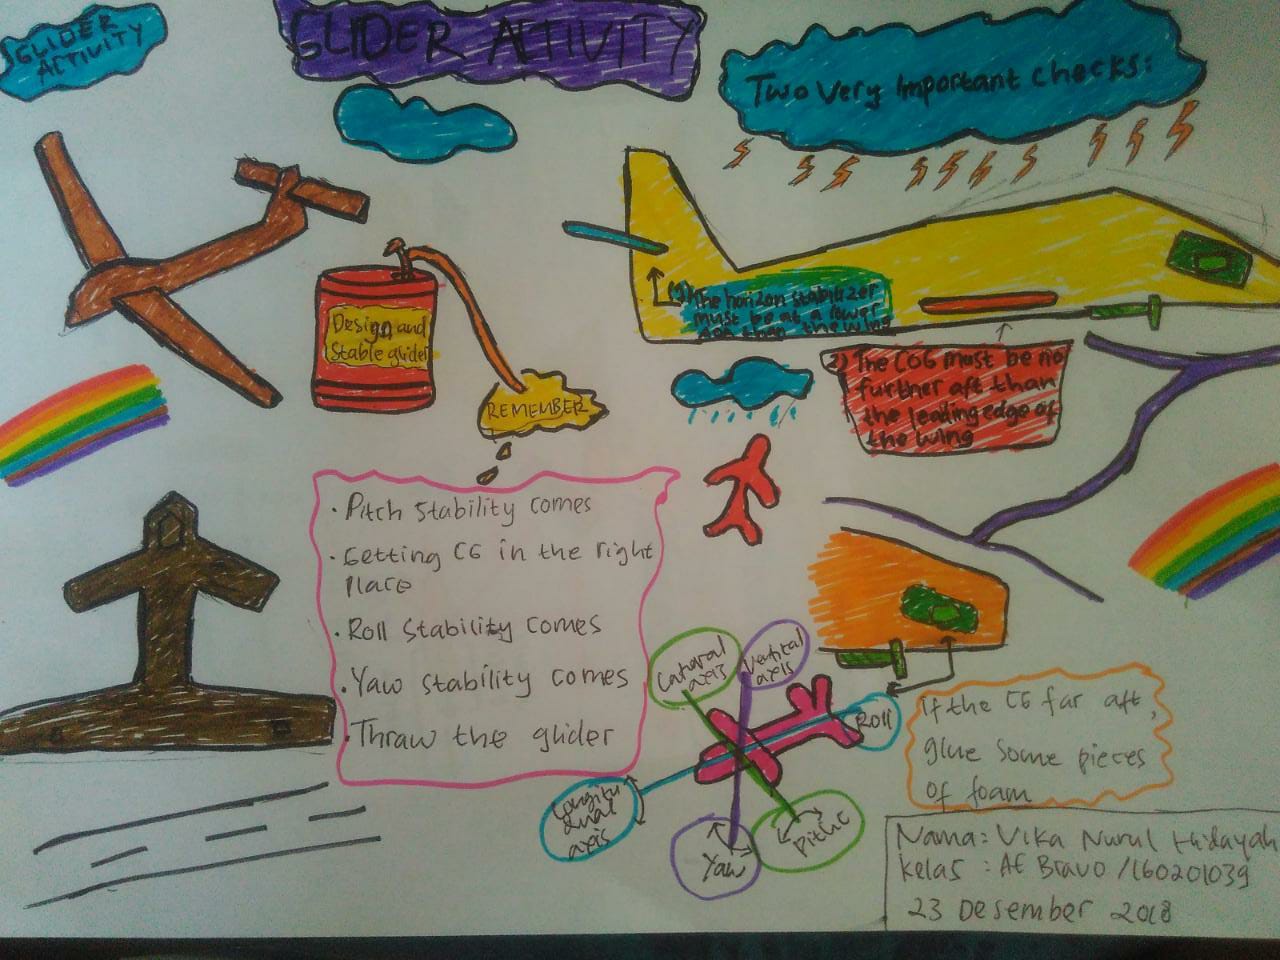 GLIDER
ACTIVITY
GLIDER ACTIVITY
Two Very Important checks:
(1) The horizon stabilizer
must be at a lower
AOA than the wing
2) The COG must be no
further aft than
the leading edge of
the wing
Design and
Stable glider
REMEMBER
· Pitch stability comes
· Getting CG in the right
Place
· Roll stability comes
· Yaw stability comes
· Thraw the glider
Lateral
axis
Vertikal
axis
Roll
Longitu
dinal
axis
Yaw
Pithc
if the CG far aft,
glue some pieces
of foam
Nama: Vika Nurul Hidayah
Kelas : AE Bravo /160201039
23 Desember 2018